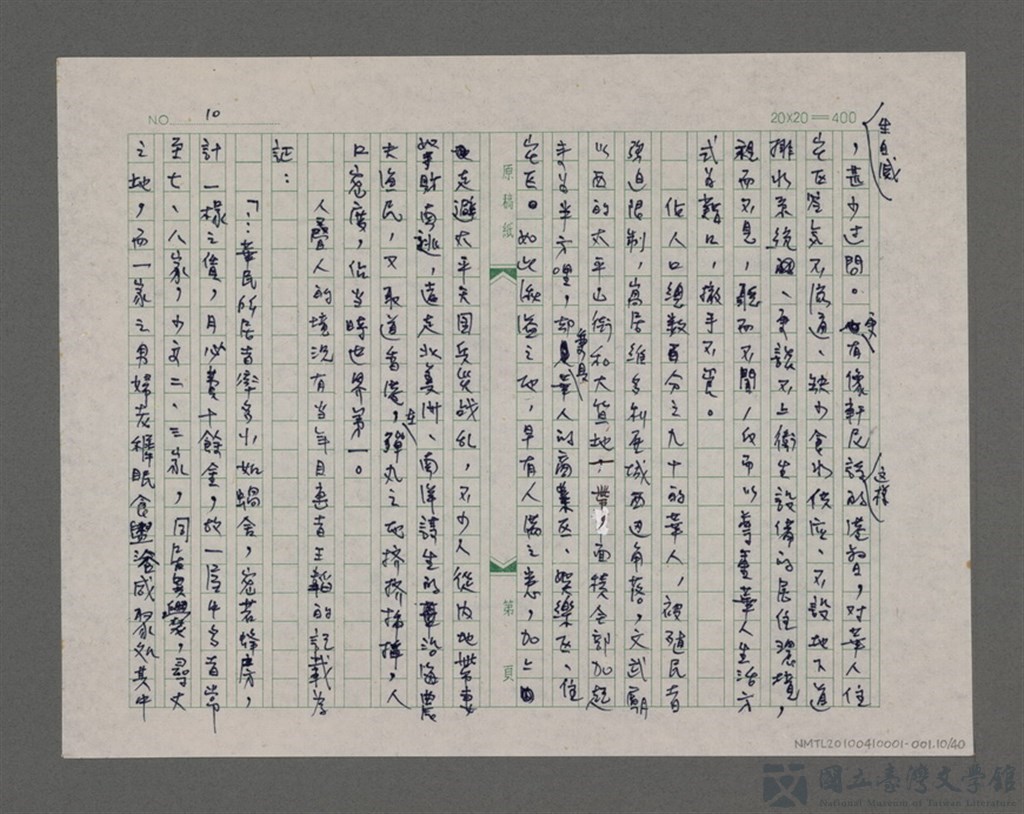 NO. 10
20×20=400
生自滅
，甚少过問。更有像軒尼詩这樣的港督，对華人住
宅区空气不流通、缺少食水供应、不設地下道
排水系統、更談不上衛生設備的居住環境，
視而不見，聽而不聞，反而以尊重華人生活方
式为藉口，撒手不管。
佔人口總數百分之九十的華人，被殖民者
强迫限制，蝸居維多利亞城西边角落，文武廟
以西的太平山街和大笪地一帶，面積全部加起
来为半方哩，却兼具華人的商業区、娛樂区、住
宅区。如此狹溢之地，早有人滿之患，加上
走避太平天国兵災战乱，不少人從內地帶妻
挈財南逃，遠走北美洲、南洋謀生的沿海農
夫漁民，又取道香港，在彈丸之地擠擠插插，人
口密度，佔当時世界第一。
人疊人的境況有当年目击者王韜的記載为
証：
「…華民所居者率多小如蝸舍，密若蜂房，
計一椽之賃，月必費十餘金，故一屋中多者常
至七、八家，少亦二、三家，同居異爨，尋丈
之地，而一家之男婦老稺眠食盥浴咸聚处其中
原稿紙
第 頁
NMTL20100410001-001.10/40
國立臺灣文學館
National Museum of Taiwan Literature